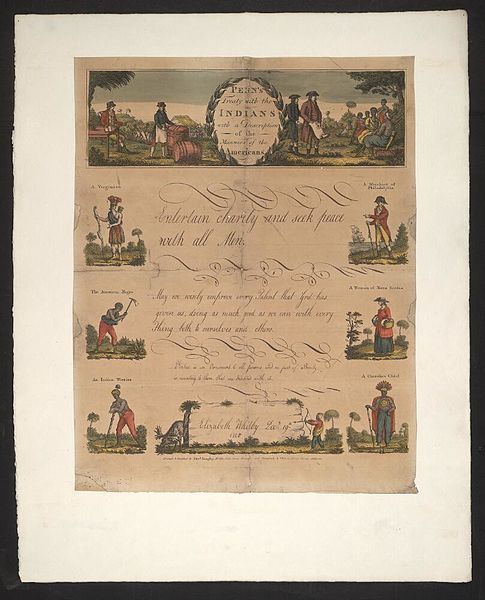 PENN'S
Treaty with the
INDIANS
with a Description
of the
Manners of the
Americans.
A Virginian
A Merchant of
Philadelphia
Entertain charity and seek peace
with all Men.
The American Negro
A Woman of Nova Scotia
May we wisely improve every Talent that God has
given us, doing as much good as we can with every
Thing both to ourselves and others.
is an Ornament to all persons and no part of Beauty
is wanting to them that are
An Indian Warrior
A Cherokee Chief
Elizabeth Dec. 19th